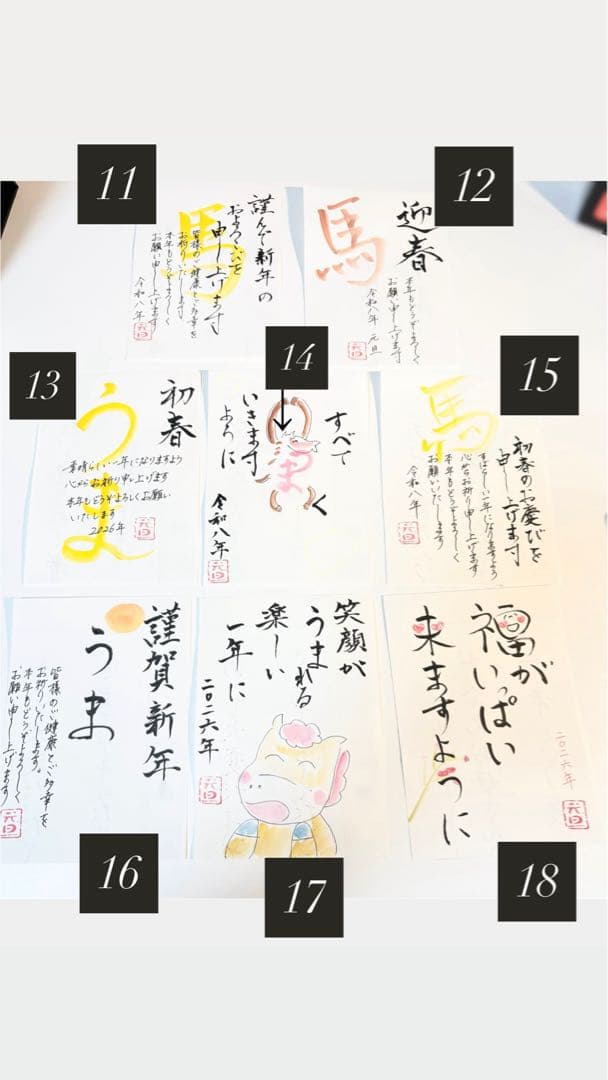 11
馬
謹んで新年の
およろこびを
申し上げます
皆様のご健康とご多幸を
お祈りいたします
本年もどうぞよろしく
お願い申し上げます
令和八年
元旦
12
馬
迎春
本年もどうぞよろしく
お願い申し上げます
令和八年 元旦
元旦
13
初春
うま
素晴らしい一年になりますよう
心からお祈り申し上げます
本年もどうぞよろしくお願い
いたします
2026年
元旦
14
すべて
うまく
いきます
ように
令和八年
元旦
15
馬
初春のお慶びを
申し上げます
すばらしい一年になりますよう
心からお祈り申し上げます
本年もどうぞよろしく
お願いいたします
令和八年
元旦
16
謹賀新年
うま
皆様のご健康とご多幸を
お祈りいたします。
本年もどうぞよろしく
お願い申し上げます
元旦
17
笑顔が
うまれる
楽しい
一年に
二〇二六年
元旦
18
福が
いっぱい
来ますように
二〇二六年
元旦